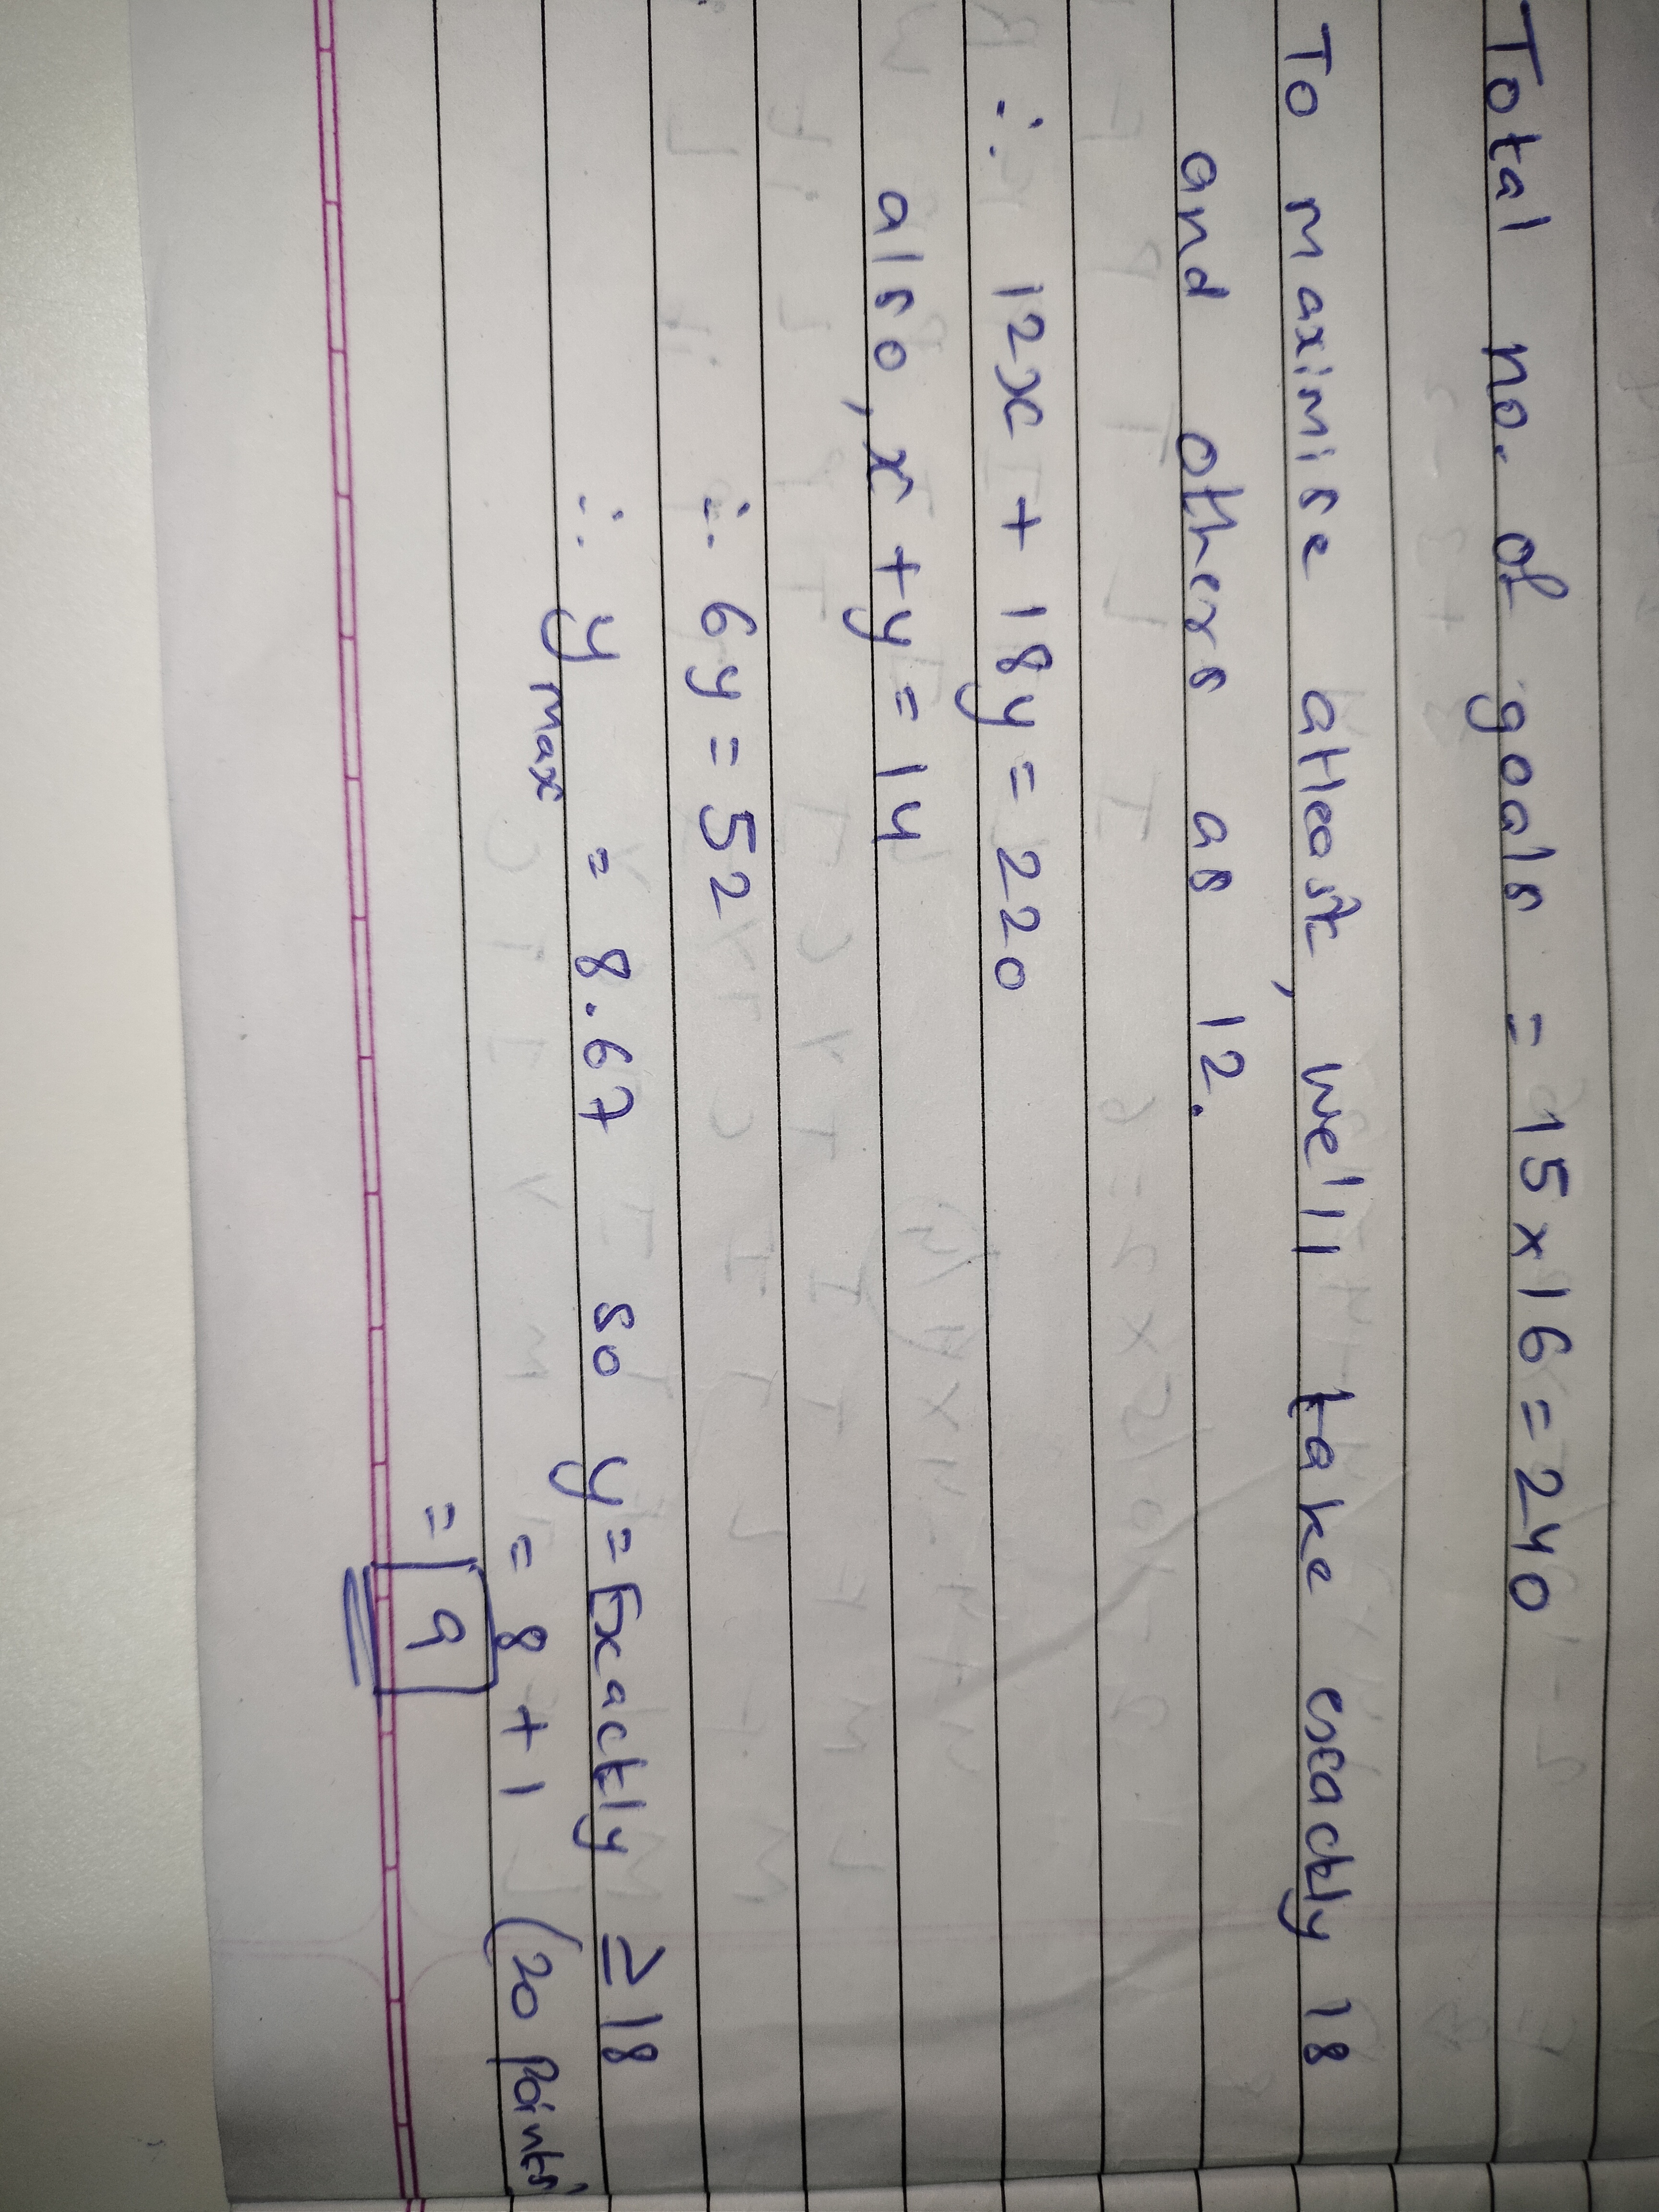 Total no. of goals = 15 x 16 = 240
To maximise atleast, we'll take exactly 18
and others as 12.
∴ 12x + 18y = 220
also, x + y = 14
∴ 6y = 52
∴ y max = 8.67 so y = Exactly ≥ 18
= 8 + 1 (20 points)
= 9